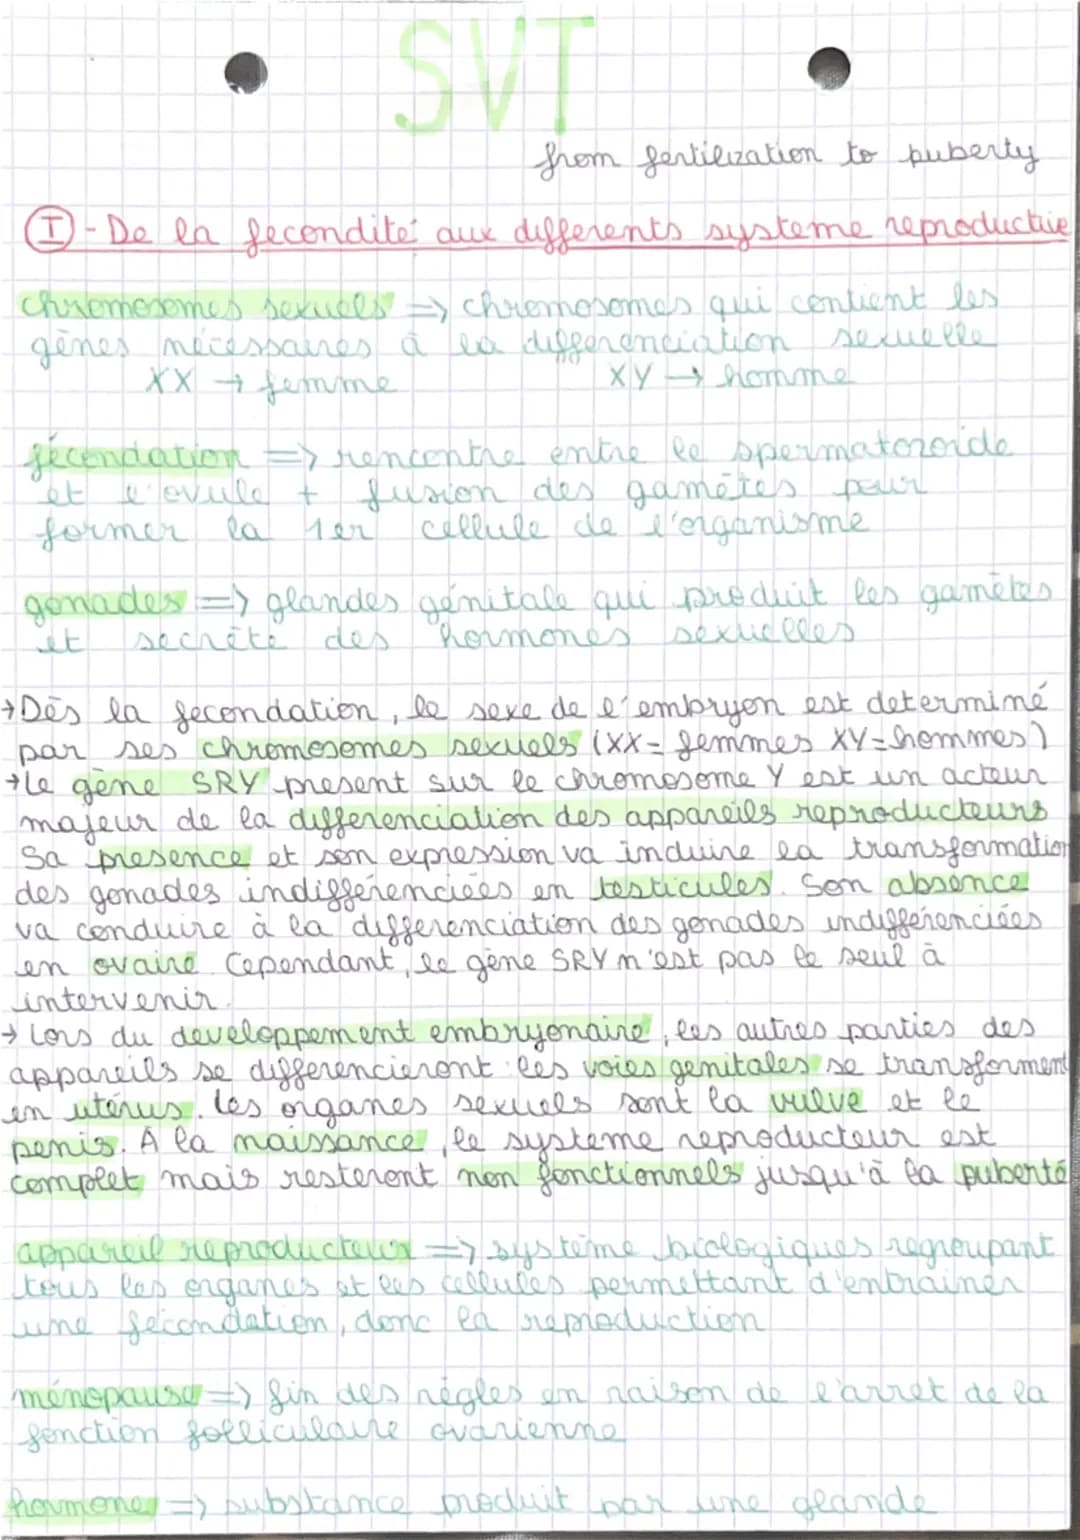 SVT
from fertilization to puberty
I - De la fecondité aux differents systeme reproductie
chromosomes sexuels => chromosomes qui contient les
gènes nécessaires à la differenciation sexuelle
XX → femme XY → homme
fécondation => rencontre entre le spermatozoide
et l'ovule + fusion des gamètes pour
former la 1er cellule de l'organisme
gonades => glandes génitale qui produit les gamètes
et secrète des hormones sexuelles
→ Dès la fecondation, le sexe de l'embryon est determiné
par ses chromosomes sexuels (XX= femmes XY=hommes)
→ Le gène SRY present sur le chromosome Y est un acteur
majeur de la differenciation des appareils reproducteurs
Sa presence et son expression va induire la transformation
des gonades indifférenciées en testicules. Son absence
va conduire à la differenciation des gonades indifférenciées
en ovaire. Cependant, le gène SRY n'est pas le seul à
intervenir.
→ Lors du developpement embryonaire, les autres parties des
appareils se differencieront : les voies genitales se transforment
en utérus. les organes sexuels sont la vulve et le
penis. A la naissance, le systeme reproducteur est
complet mais resteront non fonctionnels jusqu'à la puberté
appareil reproducteur => système biologiques regroupant
tous les organes et les cellules permettant d'entrainer
une fécondation, donc la reproduction
ménopause => fin des règles en raison de l'arret de la
fonction folliculaire ovarienne
hormone => substance produit par une glande